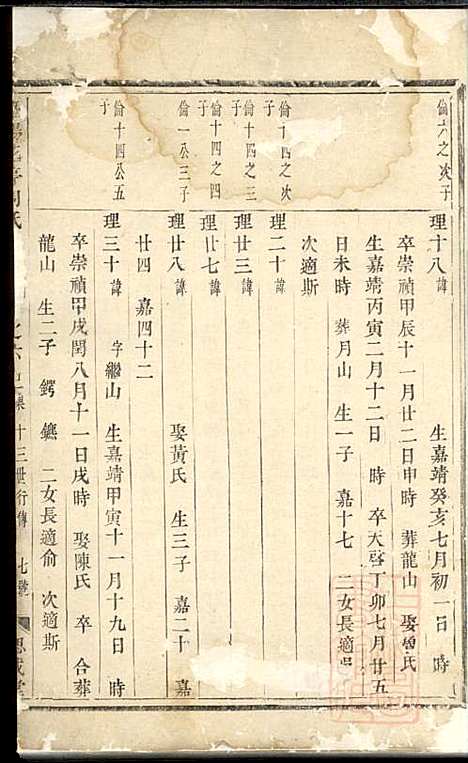 倫六之次子
理十八諱 生嘉靖癸亥七月初一日 時
卒崇禎甲辰十一月廿二日申時 葬龍山 娶曾氏
生嘉靖丙寅二月十二日 時 卒天啓丁卯七月廿五
日未時 葬月山 生一子 嘉十七 二女長適
次適斯
倫十四之次子
理二十諱
倫十四之三子
理廿三諱
倫十四之四子
理廿七諱
倫一公三子
理廿八諱 娶黃氏 生三子 嘉二十 嘉
廿四 嘉四十二
倫十四公五子
理三十諱 字繼山 生嘉靖甲寅十一月十九日 時
卒崇禎甲戌閏八月十一日戌時 娶陳氏 卒 合葬
龍山 生二子 鍔 鑣 二女長適俞 次適斯
十三世行傳 七 思成堂